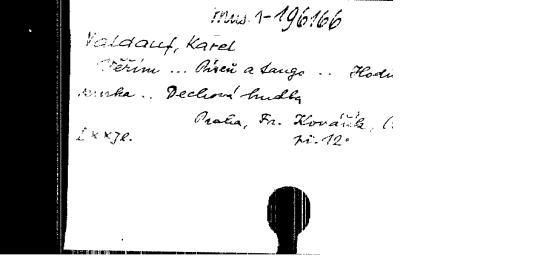 mus. 1-196166
Valdauf, Karel
Věřím ... Píseň a tango .. Hodi
.. Dechová hudba
Praha, Fr. Kovářík, (
pí. 12°